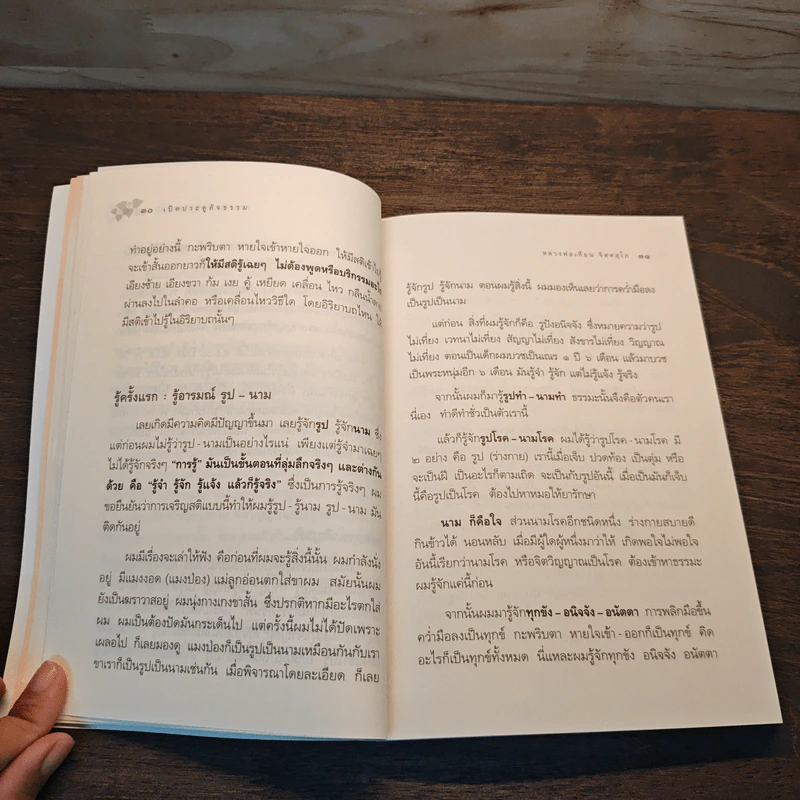 ๓๐ เปิดประตูสัจธรรม
ทำอยู่อย่างนี้ กะพริบตา หายใจเข้าหายใจออก ให้มีสติเข้าไป
จะเข้าสั้นออกยาวก็ให้มีสติรู้เฉยๆ ไม่ต้องพูดหรือบริกรรม
เอียงซ้าย เอียงขวา ก้ม เงย คู้ เหยียด เคลื่อน ไหว กลืนน้ำ
ผ่านลงไปในลำคอ หรือเคลื่อนไหววิธีใด โดยอิริยาบถไหน
มีสติเข้าไปรู้ในอิริยาบถนั้นๆ
รู้ครั้งแรก : รู้อารมณ์ รูป – นาม
เลยเกิดมีความคิดมีปัญญาขึ้นมา เลยรู้จักรูป รู้จักนาม ซึ่ง
แต่ก่อนผมไม่รู้ว่ารูป-นามเป็นอย่างไรแน่ เพียงแต่รู้จำมาเฉยๆ
ไม่ได้รู้จักจริงๆ “การรู้” มันเป็นขั้นตอนที่ลุ่มลึกจริงๆ และต่างกัน
ด้วย คือ “รู้จำ รู้จัก รู้แจ้ง แล้วก็รู้จริง” ซึ่งเป็นการรู้จริงๆ ผม
ขอยืนยันว่าการเจริญสติแบบนี้ทำให้ผมรู้รูป-รู้นาม รูป-นาม มัน
ติดกันอยู่
ผมมีเรื่องจะเล่าให้ฟัง คือก่อนที่ผมจะรู้สิ่งนี้นั้น ผมกำลังนั่ง
อยู่ มีแมงงอด (แมงป่อง) แม่ลูกอ่อนตกใส่ขาผม สมัยนั้นผม
ยังเป็นฆราวาสอยู่ ผมนุ่งกางเกงขาสั้น ซึ่งปรกติหากมีอะไรตกใส่
ผม ผมเป็นต้องปัดมันกระเด็นไป แต่ครั้งนี้ผมไม่ได้ปัดเพราะ
เผลอไป ก็เลยมองดู แมงป่องก็เป็นรูปเป็นนามเหมือนกันกับเรา
ขาเราก็เป็นรูปเป็นนามเช่นกัน เมื่อพิจารณาโดยละเอียด ก็เลย
หลวงพ่อเทียน จิตฺตสุโภ ๓๑
รู้จักรูป รู้จักนาม ตอนผมรู้สิ่งนี้ ผมมองเห็นเลยว่าการคว่ำมือลง
เป็นรูปเป็นนาม
แต่ก่อน สิ่งที่ผมรู้จักก็คือ รูปังอนิจจัง ซึ่งหมายความว่ารูป
ไม่เที่ยง เวทนาไม่เที่ยง สัญญาไม่เที่ยง สังขารไม่เที่ยง วิญญาณ
ไม่เที่ยง ตอนเป็นเด็กผมบวชเป็นเณร ๑ ปี ๖ เดือน แล้วมาบวช
เป็นพระหนุ่มอีก ๖ เดือน มันรู้จำ รู้จัก แต่ไม่รู้แจ้ง รู้จริง
จากนั้นผมก็มารู้รูปทำ–นามทำ ธรรมะนั้นจึงคือตัวคนเรา
นี่เอง ทำดีทำชั่วเป็นตัวเรานี้
แล้วก็รู้จักรูปโรค–นามโรค ผมได้รู้ว่ารูปโรค-นามโรค มี
๒ อย่าง คือ รูป (ร่างกาย) เรานี้เมื่อเจ็บ ปวดท้อง เป็นตุ่ม หรือ
จะเป็นฝี เป็นอะไรก็ตามเถิด จะเป็นกับรูปอันนี้ เมื่อเป็นมันก็เจ็บ
นี้คือรูปเป็นโรค ต้องไปหาหมอให้ยารักษา
นาม ก็คือใจ ส่วนนามโรคอีกชนิดหนึ่ง ร่างกายสบายดี
กินข้าวได้ นอนหลับ เมื่อมีผู้ใดผู้หนึ่งมาว่าให้ เกิดพอใจไม่พอใจ
อันนี้เรียกว่านามโรค หรือจิตวิญญาณเป็นโรค ต้องเข้าหาธรรมะ
ผมรู้จักแค่นี้ก่อน
จากนั้นผมมารู้จักทุกขัง–อนิจจัง–อนัตตา การพลิกมือขึ้น
คว่ำมือลงเป็นทุกข์ กะพริบตา หายใจเข้า-ออกก็เป็นทุกข์ คิด
อะไรก็เป็นทุกข์ทั้งหมด นี่แหละผมรู้จักทุกขัง อนิจจัง อนัตตา